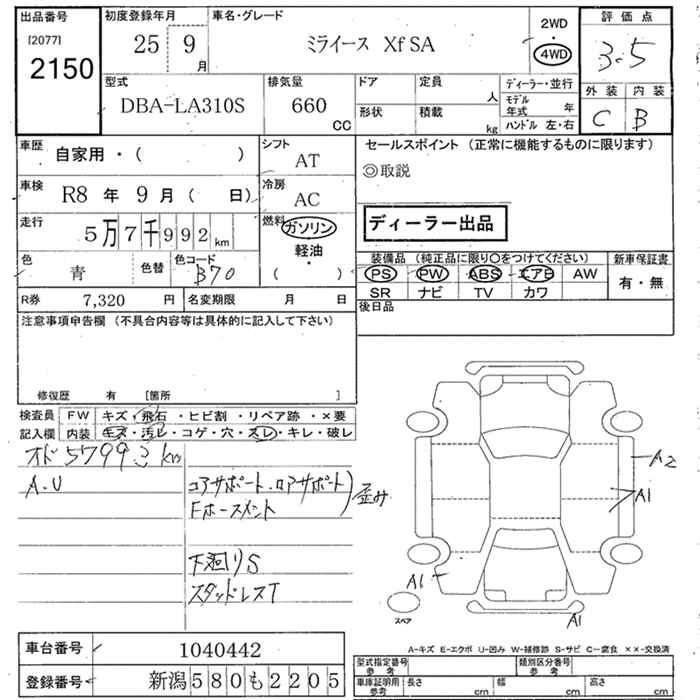 出品番号 [2077] 2150
初度登録年月 25 9 月
車名・グレード ミライース Xf SA
2WD 4WD
評価点 3.5
外装 C 内装 B
型式 DBA-LA310S
排気量 660 CC
ドア
形状
定員 人
積載 kg
ディーラー・並行
モデル年式 年
ハンドル 左・右
車歴 自家用・( )
シフト AT
車検 R8 年 9 月 ( 日)
冷房 AC
走行 5万7千992 km
燃料 ガソリン 軽油・ ( )
色 青 色替 色コード B70
R券 7,320 円 名変期限 月 日
セールスポイント (正常に機能するものに限ります)
◎取説
ディーラー出品
装備品 (純正品に限り〇をつけてください)
PS PW ABS エアB AW
SR ナビ TV カワ
新車保証書 有・無
後日品
注意事項申告欄 (不具合内容等は具体的に記入して下さい)
修復歴 有 [箇所 ]
検査員記入欄
FW キズ・飛石・ヒビ割・リペア跡・×要
内装 キズ・汚レ・コゲ・穴・ズレ・キレ・破レ
オド 57993 km
A.U
コアサポート・ロアサポート
Fホースメント
歪み
下廻りS
スタッドレスT
A2
A1
A1
A1
スペア
A-キズ E-エクボ U-凹み W-補修跡 S-サビ C-腐食 ××-交換済
車台番号 1040442
登録番号 新潟580も2205
型式指定番号 参考
類別区分番号 参考
車庫証明用 参考 長さ cm 幅 cm 高さ cm